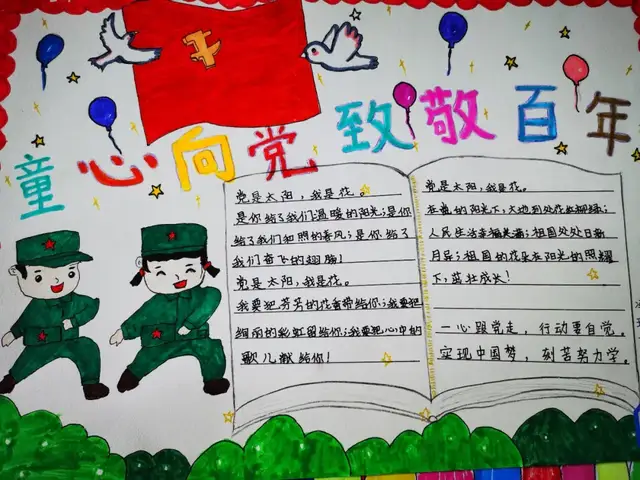 童心向党 致敬百年
党是太阳，我是花。
是你给了我们温暖的阳光；是你
给了我们和煦的春风；是你给了
我们奋飞的翅膀！
党是太阳，我是花。
我要把芬芳的花香带给你；我要把
绚丽的彩虹留给你；我要把心中的
歌儿献给你！
党是太阳，我是花。
在党的阳光下，大地到处花红柳绿；
人民生活幸福美满；祖国处处日新
月异；祖国的花朵在阳光的照耀
下，茁壮成长！
一心跟党走，行动要自觉。
实现中国梦，刻苦努力学。